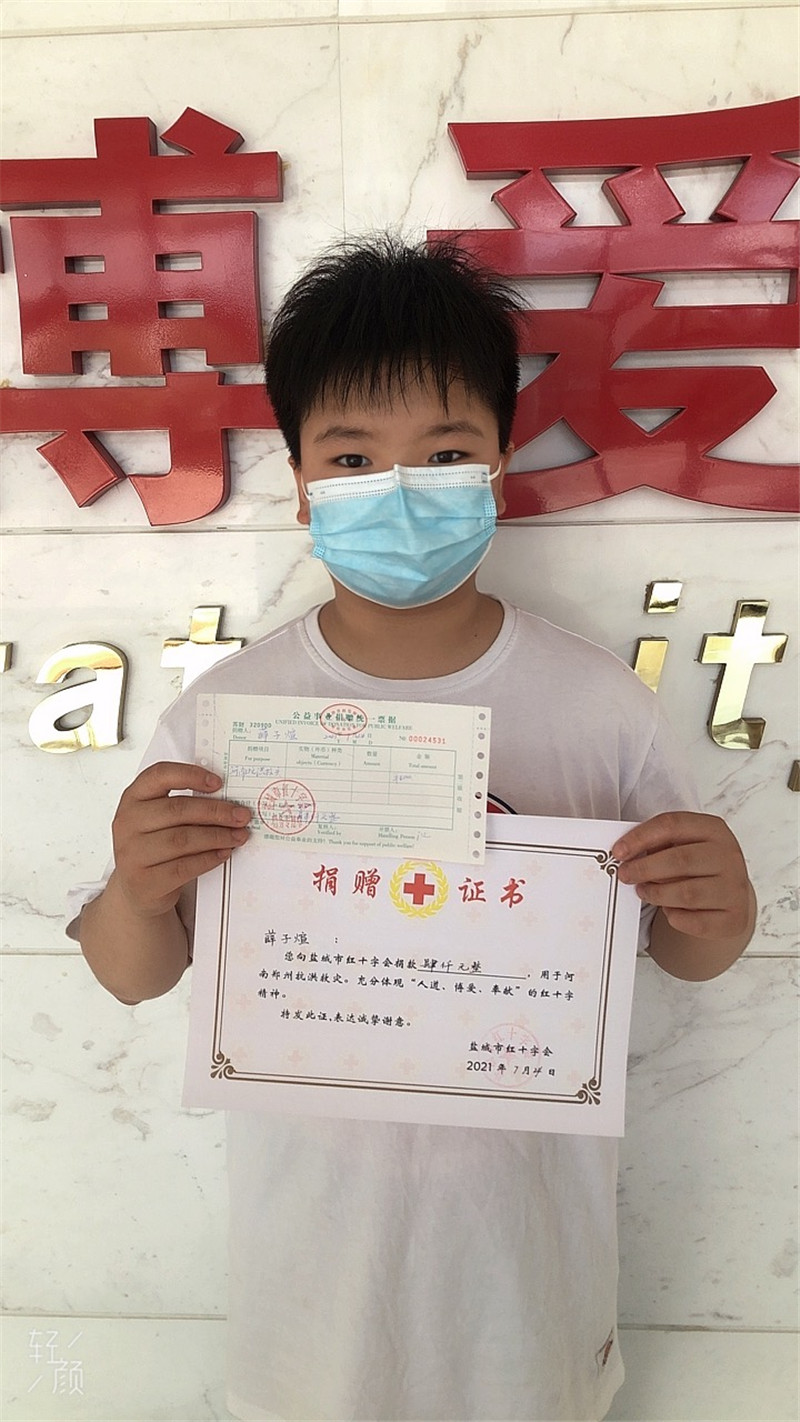 博爱
rat
it
公益事业捐赠统一票据
UNIFIED INVOICE OF DONATION FOR PUBLIC WELFARE
320900
捐赠人:
Donor
薛子煊
Y M D
№ 00024531
捐赠项目
实物(外币)种类
数量
金额
For purpose
Material
objects (Currency)
Amount
Total amount
河南抗洪救灾
复核人:
开票人:
Verified by
Handling Person
感谢您对公益事业的支持! Thank you for support of public welfare!
捐赠证书
薛子煊 :
您向盐城市红十字会捐款肆仟元整,用于河
南郑州抗洪救灾。充分体现“人道、博爱、奉献”的红十字
精神。
特发此证,表达诚挚谢意。
盐城市红十字会
2021年7月24日
轻颜